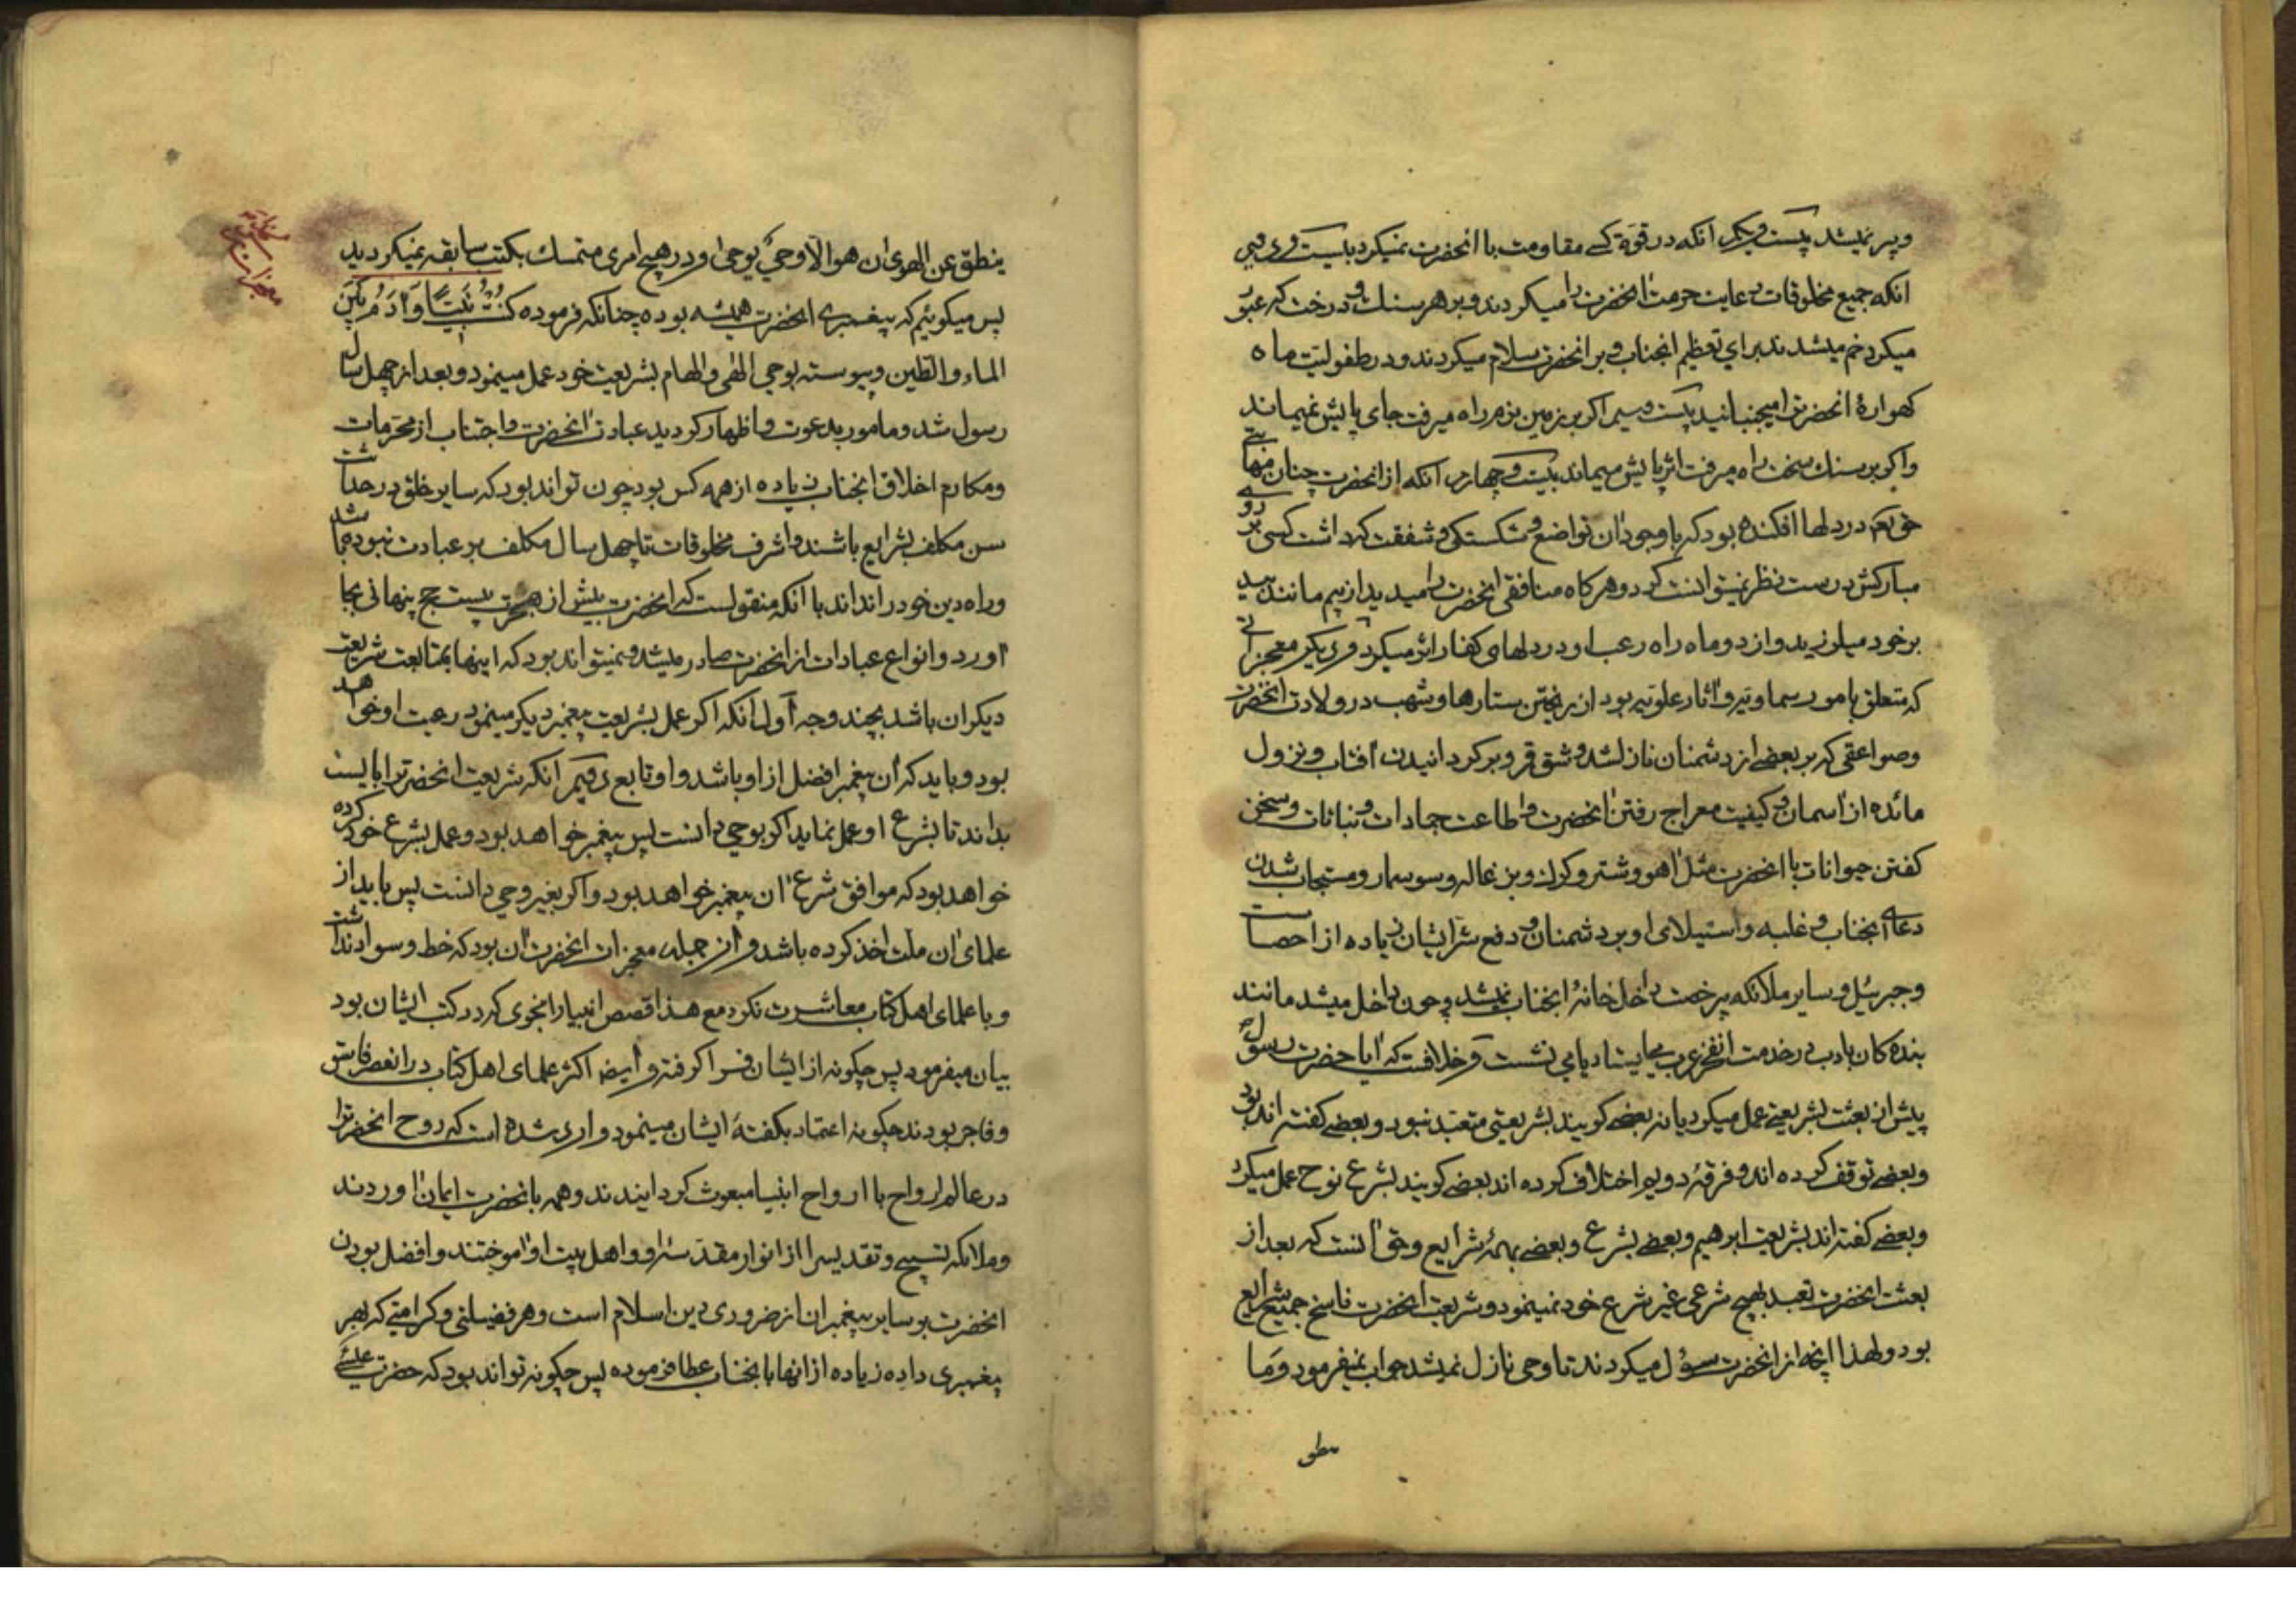 و پر نمیشد بیست و یکم آنکه در قوة کسی مقاومت با آنحضرت نمیکرد بیست و دویم
انکه جمیع مخلوقات رعایت حرمت آنحضرت را میکردند و بر هر سنك و درخت که عبور
میکرد خم میشدند برای تعظیم انجناب و بر آنحضرت سلام میکردند و در طفولیت ماه
کهوارۀ انحضرترا میجنبانید بیست و سیم اکر بر زمین نرم راه میرفت جای پایش نمیماند
و اکر بر سنك سخت راه میرفت اثر پایش میماند بیست و چهارم آنکه از انحضرت چنان مهابتی
حق تعم در دلها افکنده بود که با وجود آن تواضع و شکستکی و شفقت که داشت کسی بر روی
مبارکش درست نظر نمیتوانست کرد و هر کاه منافقی انحضرت را میدید از بیم مانند بید
بر خود میلرزید و از دو ماه راه رعب او در دلهای کفار اثر میکرد و دیکر معجزاتی
که متعلق بامور سماویه و آثار علویه بود از ریختن ستارها و شهب در ولادت انحضرت
و صواعقی که بر بعضی از دشمنان نازل شد و شق قمر و بر کردانیدن آفتاب و نزول
مائده از آسمان و کیفیت معراج رفتن آنحضرت و اطاعت جمادات و نباتات و سخن
کفتن حیوانات با انحضرت مثل آهو و شتر و کرك و بزغاله و سوسمار و مستجاب شدن
دعای انجناب و غلبه و استیلای او بر دشمنان و دفع شر ایشان زیاده از احصاست
و جبرئیل و سایر ملائکه بی رخصت داخل خانۀ انجناب نمیشد و چون داخل میشد مانند
بنده کان بادب در خدمت انفخر عرب میایستاد یا می نشست و خلافست که آیا حضرت رسول
پیش از بعثت بشریعتی عمل میکرد یا نه بعضی کویند بشریعتی متعبد نبود و بعضی کفته اند بود
و بعضی توقف کرده اند و فرقۀ دویم اختلاف کرده اند بعضی کویند بشرع نوح عمل میکرد
و بعضی کفته اند بشریعت ابرهیم و بعضی بشرع و بعضی بهمۀ شرایع و حق آنست که بعد از
بعثت انحضرت تعبد بهیچ شرعی غیر شرع خود نمینمود و شریعت آنحضرت ناسخ جمیع شرایع
بود و لهذا انچه از انحضرت سؤل میکردند تا وحی نازل نمیشد جواب نمیفرمود و ما
ینطق
ینطق عن الهوی ان هو الا وحی یوحی و در هیچ امری متمسك بکتب سابقه نمیکردید
پس میکوئیم که پیغمبری انحضرت همیشه بوده چنانکه فرموده کُنْتُ نَبِیًّا وَآدَمُ بَیْنَ
الماء و الطین و پیوسته بوحی الهی و الهام بشریعت خود عمل مینمود و بعد از چهل سال
رسول شد و مامور بدعوت و اظهار کردید عبادت آنحضرت و اجتناب از محرمات
و مکارم اخلاق انجناب زیاده از همه کس بود چون تواند بود که سایر خلق در حداثت
سن مکلف بشرایع باشند و اشرف مخلوقات تا چهل سال مکلف بر عبادت نبوده باشد
و راه دین خود را نداند با آنکه منقولست که انحضرت پیش از هجرت بیست حج پنهانی بجا
آورد و انواع عبادات از انحضرت صادر میشد و نمیتواند بود که اینها بمتابعت شریعت
دیکران باشد بچند وجه اول انکه اکر عمل بشریعت پیغمبر دیکر مینمود رعیت او خواهد
بود و باید که آن پیغمبر افضل از او باشد و او تابع دویم آنکه شریعت انحضرترا بایست
بداند تا بشرع او عمل نماید اکر بوحی دانست پس پیغمبر خواهد بود و عمل بشرع خود کرده
خواهد بود که موافق شرع آن پیغمبر خواهد بود و اکر بغیر وحی دانست پس باید از
علمای ان ملت اخذ کرده باشد و از جمله معجزات انحضرت آن بود که خط و سواد نداشت
و با علمای اهل کتاب معاشرت نکرد مع هذا قصص انبیا را بنحوی که در کتب ایشان بود
بیان میفرمود پس چکونه از ایشان فرا کرفته و ایضا اکثر علمای اهل کتاب در انعصر فاسق
و فاجر بودند چکونه اعتماد بکفتۀ ایشان مینمود و وارد شده است که روح انحضرترا
در عالم ارواح با ارواح انبیا مبعوث کردانیدند و همه بانحضرت ایمان آوردند
و ملائکه تسبیح و تقدیس را از انوار مقدسۀ او و اهل بیت او آموختند و افضل بودن
انحضرت بر سایر پیغمبران از ضروری دین اسلام است و هر فضیلتی و کرامتی که بهر
پیغمبری داده زیاده از انها بانجناب عطا فرموده پس چکونه تواند بود که حضرت عیسی